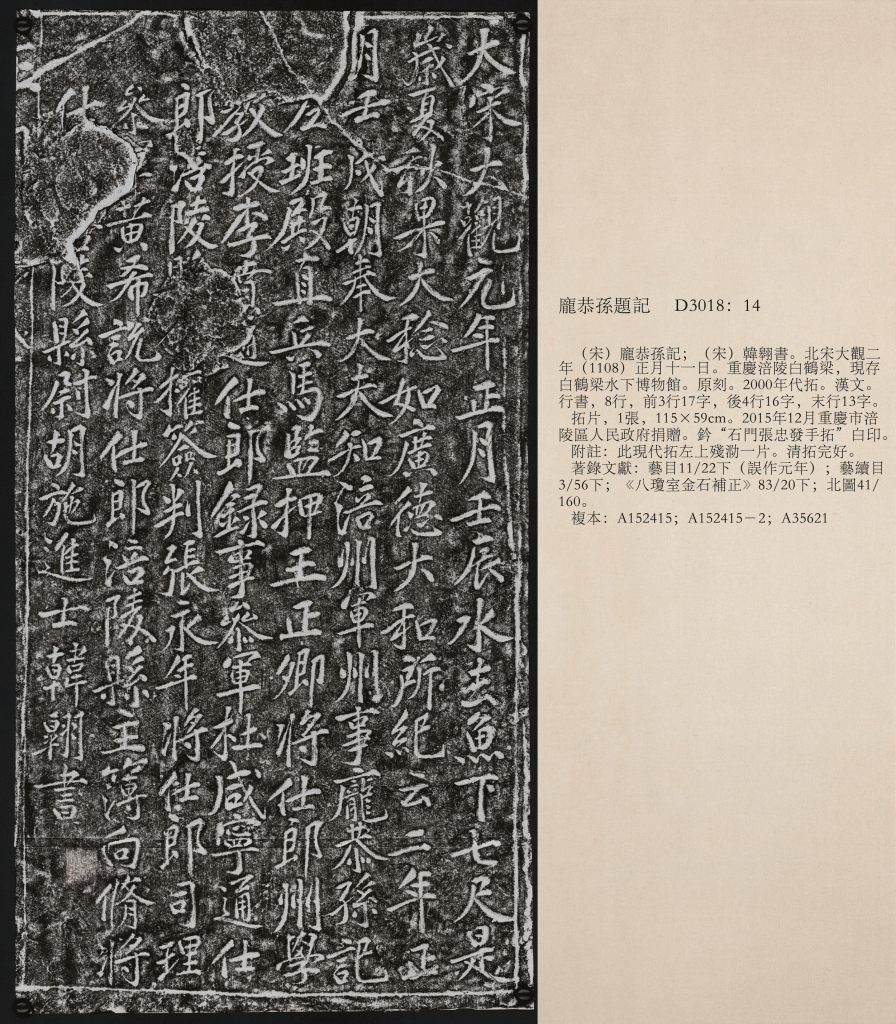 大宋大觀元年正月壬辰水去魚下七尺是
嵗夏秋果大稔如廣德大和所紀云二年正
月壬戌朝奉大夫知涪州軍州事龐恭孫記
左班殿直兵馬監押王正卿將仕郎州學
教授李賁通仕郎録事叅軍杜咸寧通仕
郎涪陵權簽判張永年將仕郎司理
叅黃希說將仕郎涪陵縣主簿向脩將
仕陵縣尉胡施進士韓翱書
龐恭孫題記 D3018：14
（宋）龐恭孫記；（宋）韓翱書。北宋大觀二
年（1108）正月十一日。重慶涪陵白鶴梁，現存
白鶴梁水下博物館。原刻。2000年代拓。漢文。
行書，8行，前3行17字，後4行16字，末行13字。
拓片，1張，115×59cm。2015年12月重慶市涪
陵區人民政府捐贈。鈐“石門張忠發手拓”白印。
附註：此現代拓左上殘泐一片。清拓完好。
著錄文獻：藝目11/22下（誤作元年）；藝續目
3/56下；《八瓊室金石補正》83/20下；北圖41/
160。
複本：A152415；A152415－2；A35621